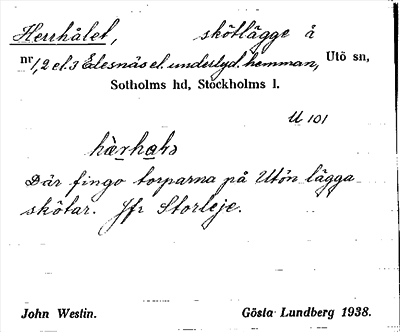 Herrhålet, skötlägge å
nr 1, 2 el. 3 Edesnäs el. underlyd. hemman, Utö sn,
Sotholms hd, Stockholms l.
U 101
hærhalə
Där fingo torparna på Utön lägga
skötar. Jfr Storleje.
John Westin. Gösta Lundberg 1938.